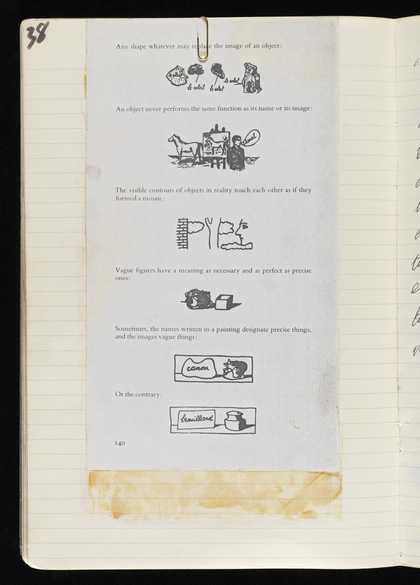 38
Any shape whatever may replace the image of an object:
le soleil
le soleil
le soleil
An object never performs the same function as its name or its image:
cheval
The visible contours of objects in reality touch each other as if they
formed a mosaic:
Vague figures have a meaning as necessary and as perfect as precise
ones:
Sometimes, the names written in a painting designate precise things,
and the images vague things:
canon
Or the contrary:
brouillard
140